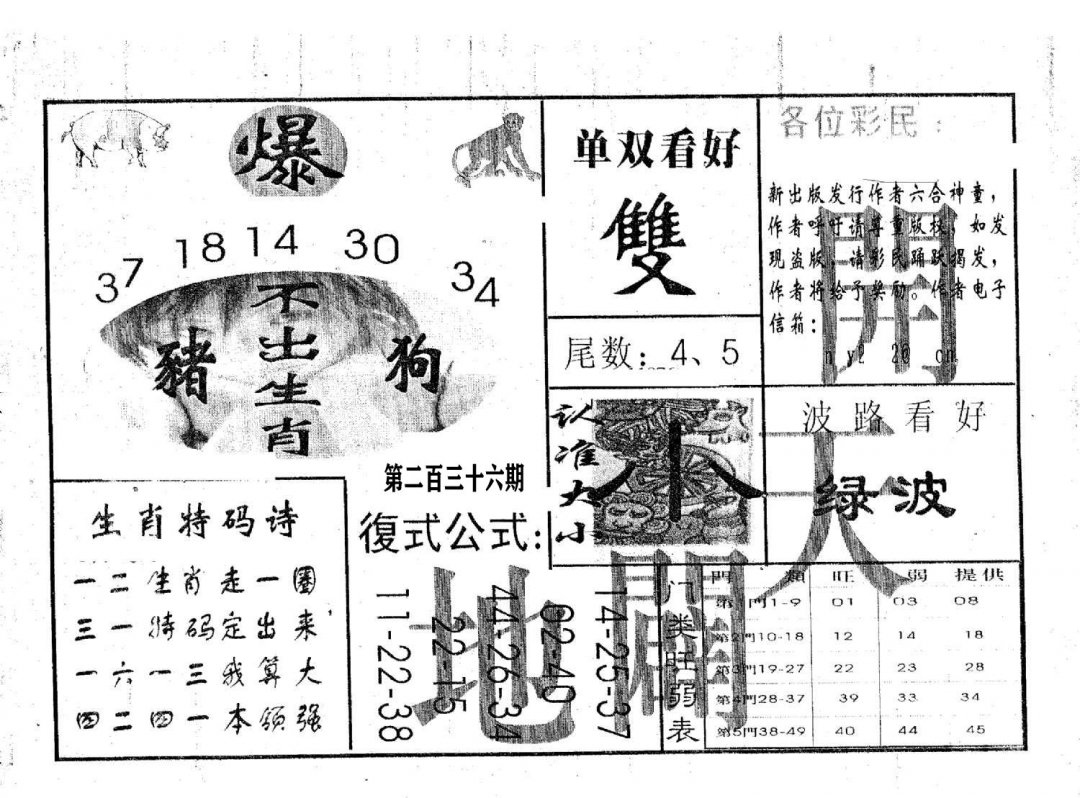 爆
37 18 14 30 34
不出生肖
豬
狗
单双看好
雙
尾数：4、5
各位彩民：
新出版发行作者六合神童，
作者呼吁请尊重版权，如发
现盗版，请彩民踊跃揭发，
作者将给予奖励。作者电子
信箱：
開
认准大小
小
波路看好
绿波
天
第二百三十六期
復式公式:
11-22-38
22-15
44-26-34
02-40
14-25-37
地
開
生肖特码诗
一二生肖走一圈
三一特码定出来
一六一三我算大
四二四一本领强
门类旺弱表
門類 旺 弱 提供
第1門1-9 01 03 08
第2門10-18 12 14 18
第3門19-27 22 23 28
第4門28-37 39 33 34
第5門38-49 40 44 45